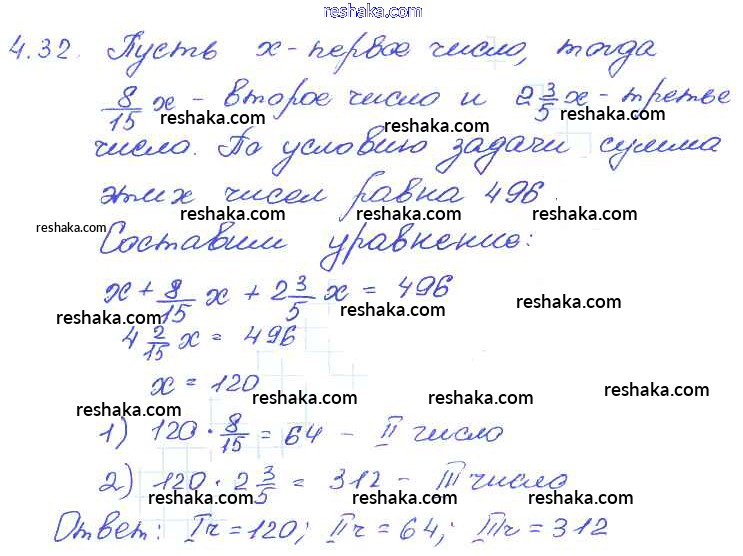 reshaka.com
4.32. Пусть x - первое число, тогда
reshaka.com reshaka.com
8/15 x - второе число и 2 3/5 x - третье
reshaka.com reshaka.com
число. По условию задачи сумма
reshaka.com reshaka.com
этих чисел равна 496.
reshaka.com reshaka.com reshaka.com
Составим уравнение:
reshaka.com
x + 8/15 x + 2 3/5 x = 496
reshaka.com reshaka.com reshaka.com
4 2/15 x = 496
x = 120
reshaka.com reshaka.com reshaka.com
1) 120 · 8/15 = 64 - II число
reshaka.com
2) 120 · 2 3/5 = 312 - III число
reshaka.com reshaka.com
Ответ: Iч = 120; IIч = 64; IIIч = 312
reshaka.com reshaka.com